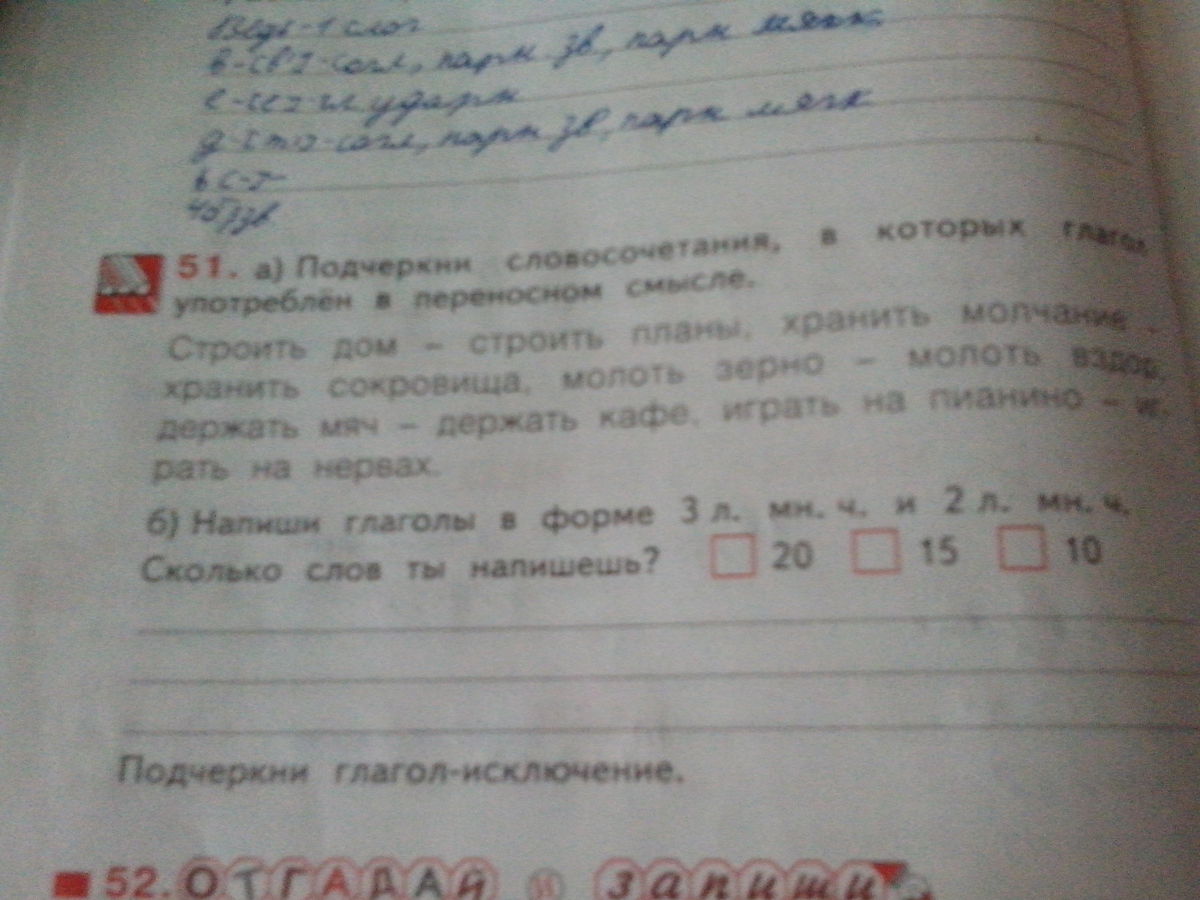 Ведь-1 слог
в-[в']-согл, парн зв, парн мягк.
е-[е]-гл ударн
д-[т']-согл, парн зв, парн мягк
ь [-]
4б, 3зв
51. а) Подчеркни словосочетания, в которых глагол
употреблён в переносном смысле.
Строить дом – строить планы, хранить молчание
хранить сокровища, молоть зерно – молоть вздор,
держать мяч – держать кафе, играть на пианино – иг
рать на нервах.
б) Напиши глаголы в форме 3 л. мн. ч. и 2 л. мн. ч.
Сколько слов ты напишешь? 20 15 10
Подчеркни глагол-исключение.
52. ОТГАДАЙ И запиши